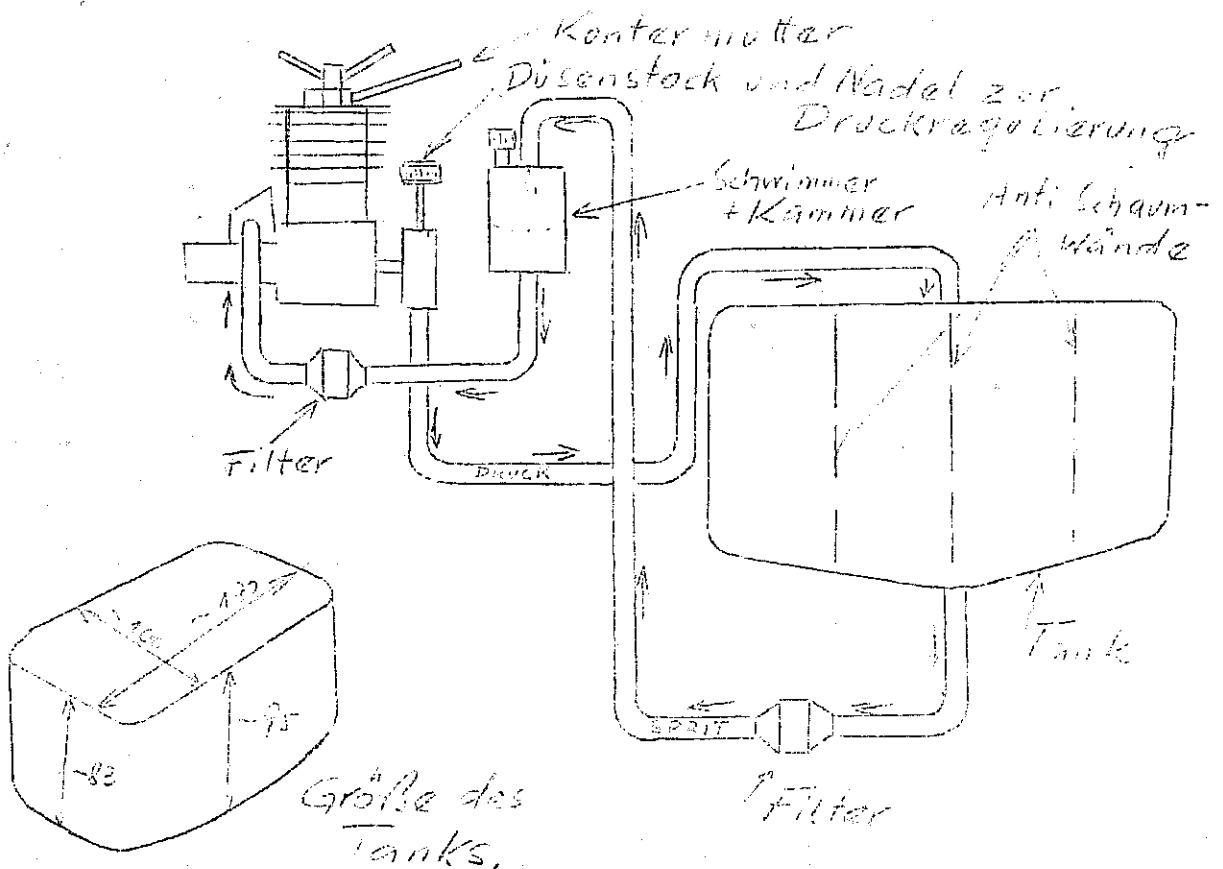 Kontermutter
Düsenstock und Nadel zur
Druckregulierung
Schwimmer
+ Kammer
Anti Schaum-
Wände
Filter
DRUCK
Tank
SPRIT
Filter
~95
~83
Größe des
Tanks.